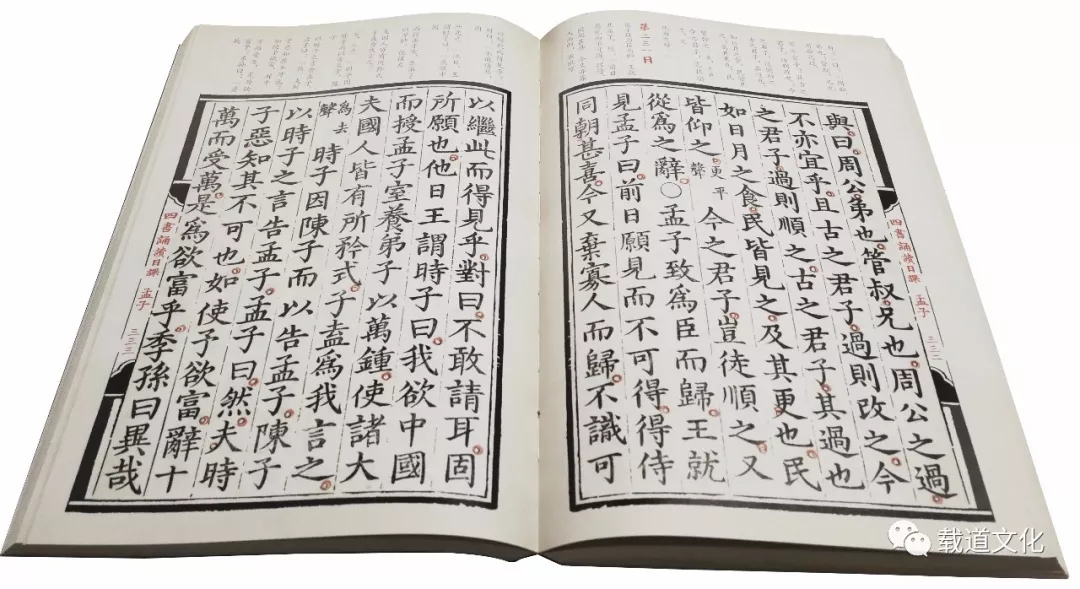 第二三一日
與曰周公弟也管叔兄也周公之過
不亦宜乎且古之君子過則改之今
之君子過則順之古之君子其過也
如日月之食民皆見之及其更也民
皆仰之 更平聲 今之君子豈徒順之又
從爲之辭○孟子致爲臣而歸王就
見孟子曰前日願見而不可得得侍
同朝甚喜今又棄寡人而歸不識可
四書誦讀日課 孟子 三三二
以繼此而得見乎對曰不敢請耳固
所願也他日王謂時子曰我欲中國
而授孟子室養弟子以萬鍾使諸大
夫國人皆有所矜式子盍爲我言之
爲去聲 時子因陳子而以告孟子陳子
以時子之言告孟子孟子曰然夫時
子惡知其不可也如使予欲富辭十
萬而受萬是爲欲富乎季孫曰異哉
四書誦讀日課 孟子 三三三
载道文化